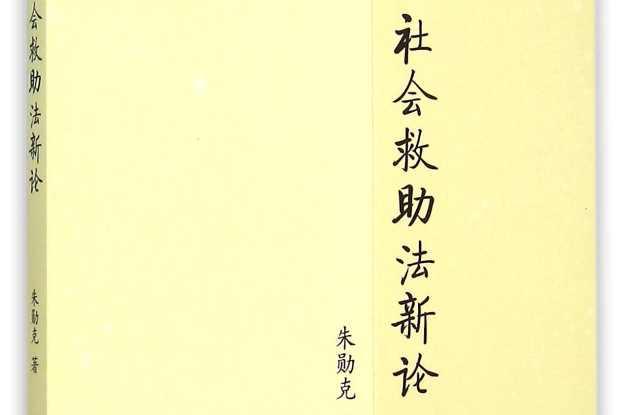 会救助法新论
朱勋克 著
社会救助法新论
朱勋克